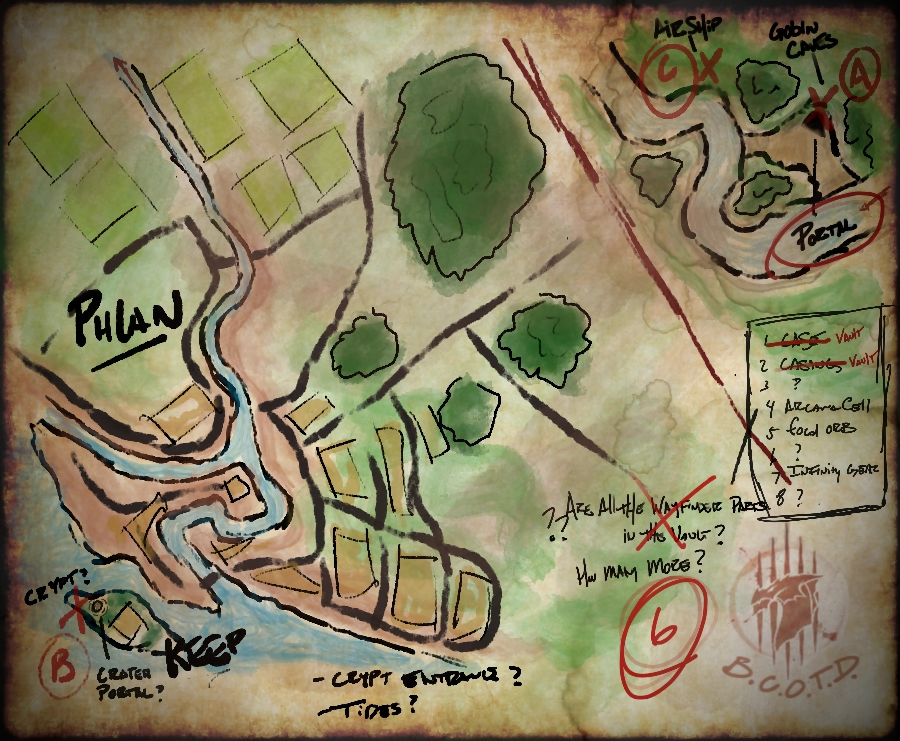 AIRSHIP
GOBLIN
CAVES
C X
A
PORTAL
PHLAN
1 CASE VAULT
2 CASINGS VAULT
3 ?
4 ARCANA CELL
5 FOCAL ORB
?
7 INFINITY GEAR
8 ?
? ARE ALL THE WAYFINDER PARTS
IN THE VAULT?
HOW MANY MORE?
6
CRYPT?
KEEP
B
CRATER
PORTAL?
- CRYPT ENTRANCE?
- TIDES?
B.C.O.T.D.